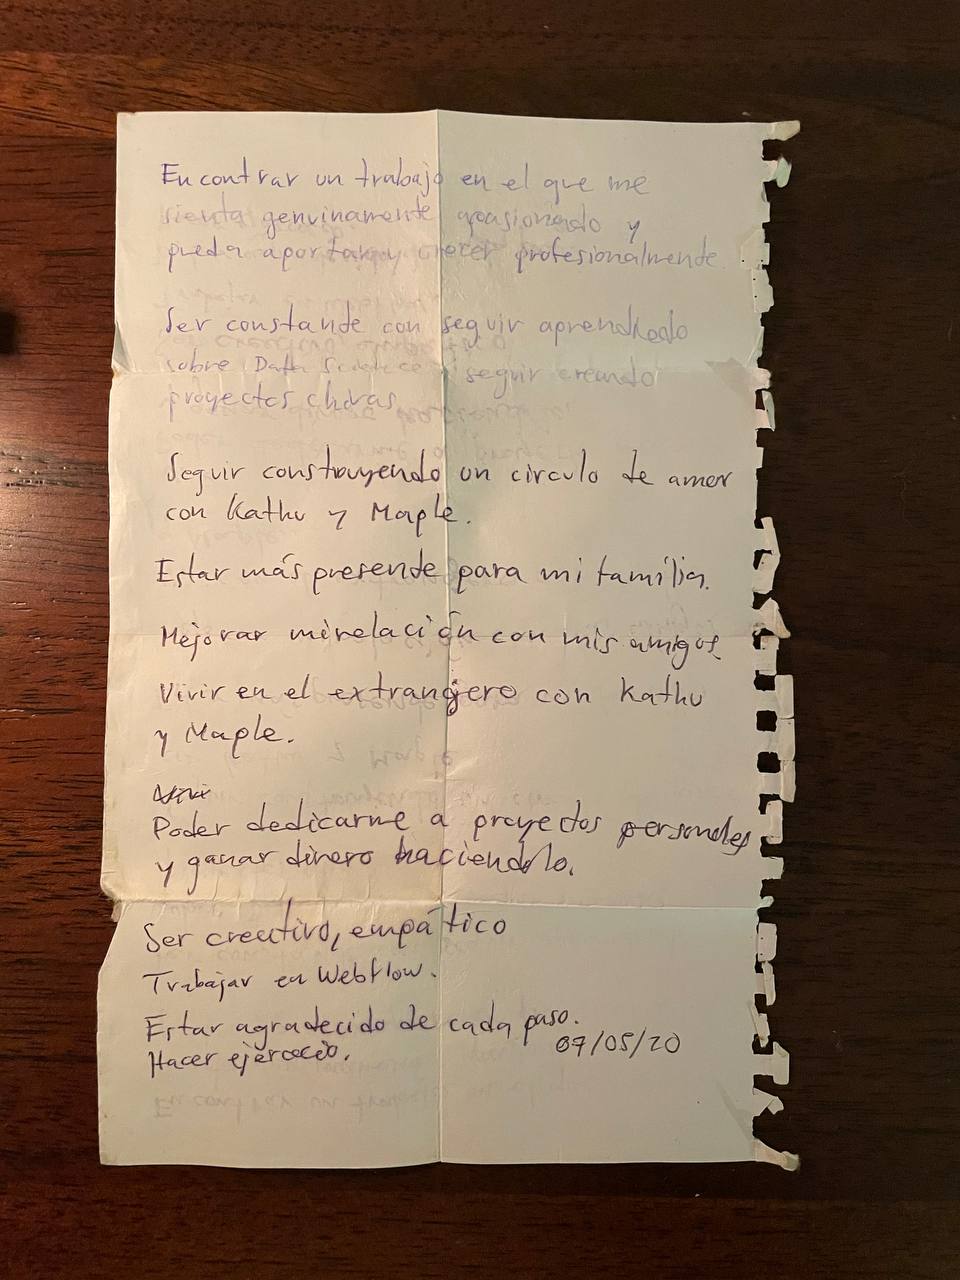 Encontrar un trabajo en el que me
sienta genuinamente apasionado y
pueda aportar y crecer profesionalmente.
Ser constante con seguir aprendiendo
sobre Data Science y seguir creando
proyectos chéras
Seguir construyendo un circulo de amor
con Kathu y Maple.
Estar más presente para mi familia.
Mejorar mi relación con mis amigos
Vivir en el extranjero con Kathu
y Maple.
Poder dedicarme a proyectos personales
y ganar dinero haciendolo.
Ser creativo, empático
Trabajar en Webflow.
Estar agradecido de cada paso.
07/05/20
Hacer ejercicio.